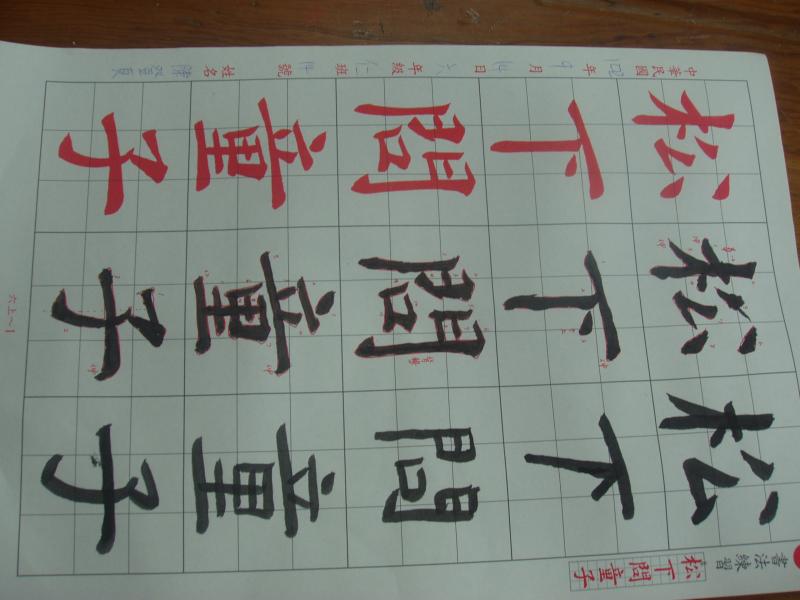 書法練習
松下問童子
松下問童子
松下問童子
松下問童子
中華民國 年 月 日 六 年級 仁 班 號 姓名
六上~1